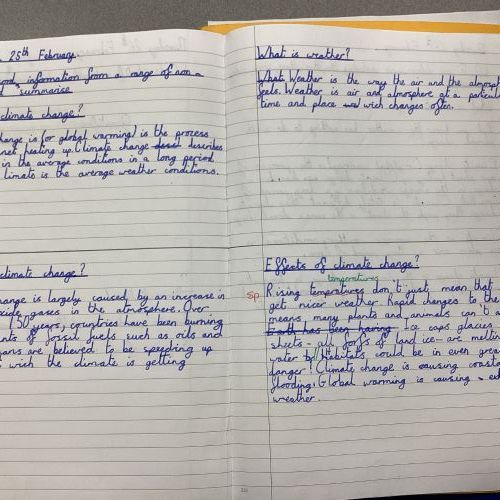 25th February.
information from a range of non-
summarise
climate change?
change is (or global warming) is the process
net heating up. Climate change describes
in the average conditions in a long period
limate is the average weather conditions.
climate change?
hange is largely caused by an increase in
oxide gases in the atmosphere. Over
150 years, countries have been burning
nts of fossil fuels such as oils and
are believed to be speeding up
wich the climate is getting
What is weather?
What Weather is the way the air and the atmosph
feels. Weather is air and atmosphere at a particula
time and place wich changes often.
Effects of climate change?
temperatures
Sp Rising tempratures don't just mean that
get nicer weather. Rapid changes to the
means many plants and animals can't a
Earth has been having Ice caps glacies
sheets - all forfs of land ice - are melting
water b Habitats could be in even grea
danger! Climate change is causing coasta
flooding! Global warming is causing ex
weather.